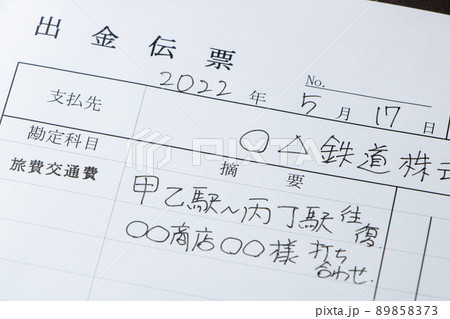 出金伝票
No.
2022年 5月 17日
支払先 ○△鉄道株式
勘定科目 摘要
旅費交通費 甲乙駅〜丙丁駅 往復
○○商店○○様 打ち合わせ.
PIXTA
89858373